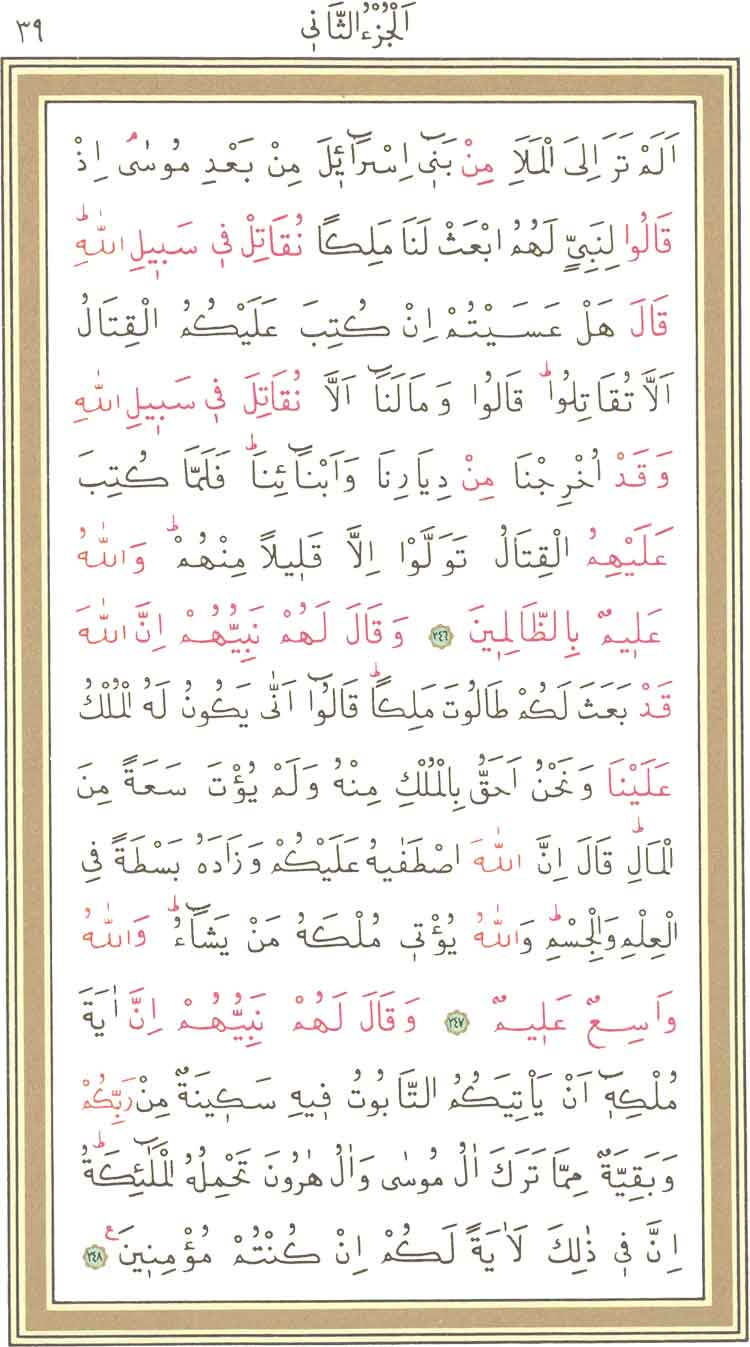 اَلْجُزْءُ الثَّانٖي ٣٩
اَلَمْ تَرَ اِلَى الْمَلَاِ مِنْ بَنٖٓي اِسْرَٓائٖلَ مِنْ بَعْدِ مُوسٰىۢ اِذْ
قَالُوا لِنَبِيٍّ لَهُمُ ابْعَثْ لَنَا مَلِكًا نُقَاتِلْ فٖي سَبٖيلِ اللّٰهِؕ
قَالَ هَلْ عَسَيْتُمْ اِنْ كُتِبَ عَلَيْكُمُ الْقِتَالُ
اَلَّا تُقَاتِلُواؕ قَالُوا وَمَالَنَٓا اَلَّا نُقَاتِلَ فٖي سَبٖيلِ اللّٰهِ
وَقَدْ اُخْرِجْنَا مِنْ دِيَارِنَا وَاَبْنَٓائِنَاؕ فَلَمَّا كُتِبَ
عَلَيْهِمُ الْقِتَالُ تَوَلَّوْا اِلَّا قَلٖيلاً مِنْهُمْؕ وَاللّٰهُ
عَلٖيمٌ بِالظَّالِمٖينَ ﴿٢٤٦﴾ وَقَالَ لَهُمْ نَبِيُّهُمْ اِنَّ اللّٰهَ
قَدْ بَعَثَ لَكُمْ طَالُوتَ مَلِكًاؕ قَالُٓوا اَنّٰى يَكُونُ لَهُ الْمُلْكُ
عَلَيْنَا وَنَحْنُ اَحَقُّ بِالْمُلْكِ مِنْهُ وَلَمْ يُؤْتَ سَعَةً مِنَ
الْمَالِؕ قَالَ اِنَّ اللّٰهَ اصْطَفٰيهُ عَلَيْكُمْ وَزَادَهُ بَسْطَةً فِي
الْعِلْمِ وَالْجِسْمِؕ وَاللّٰهُ يُؤْتٖي مُلْكَهُ مَنْ يَشَٓاءُؕ وَاللّٰهُ
وَاسِعٌ عَلٖيمٌ ﴿٢٤٧﴾ وَقَالَ لَهُمْ نَبِيُّهُمْ اِنَّ اٰيَةَ
مُلْكِهٖٓ اَنْ يَأْتِيَكُمُ التَّابُوتُ فٖيهِ سَكٖينَةٌ مِنْ رَبِّكُمْ
وَبَقِيَّةٌ مِمَّا تَرَكَ اٰلُ مُوسٰى وَاٰلُ هٰرُونَ تَحْمِلُهُ الْمَلٰٓئِكَةُؕ
اِنَّ فٖي ذٰلِكَ لَاٰيَةً لَكُمْ اِنْ كُنْتُمْ مُؤْمِنٖينَ ع ﴿٢٤٨﴾